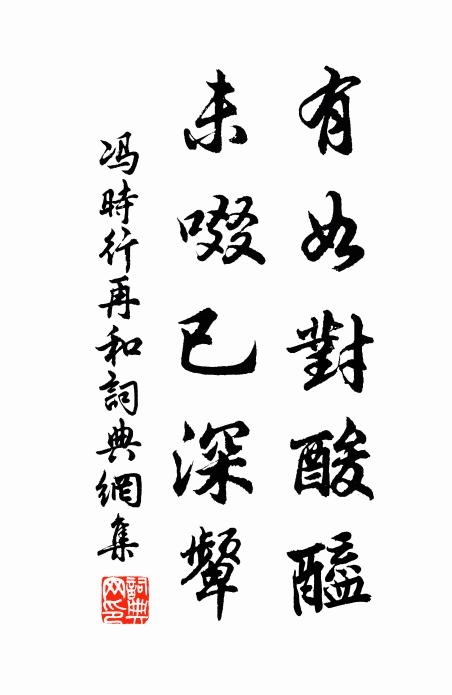 有如對酸醯
未啜已深顰
冯時行再和詞典網集
詞典网印